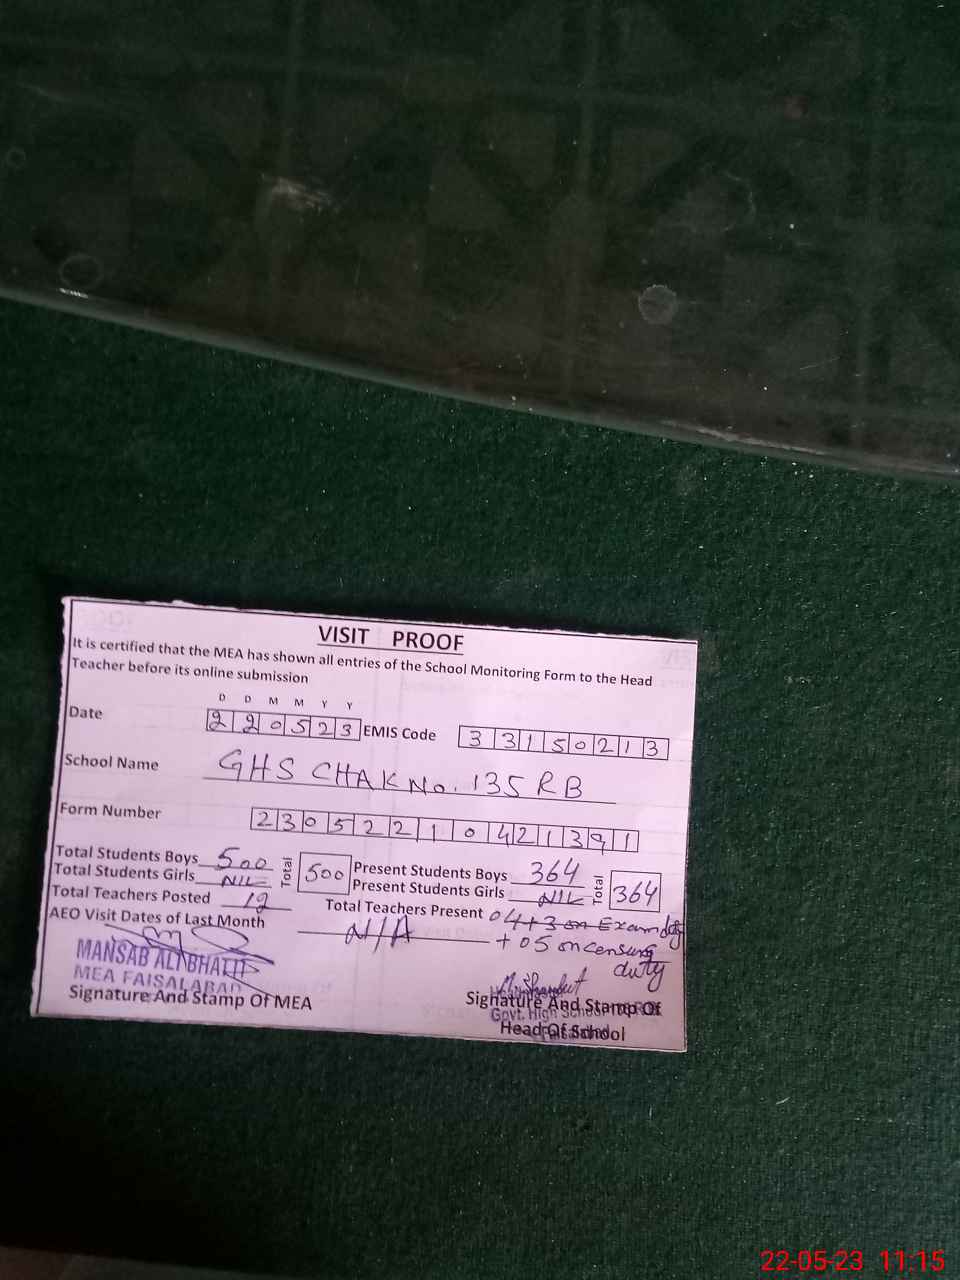 VISIT PROOF
It is certified that the MEA has shown all entries of the School Monitoring Form to the Head
Teacher before its online submission
D D M M Y Y
Date 220523 EMIS Code 33150213
School Name GHS CHAK No. 135 RB
Form Number 23052210421391
Total Students Boys 500 Total 500 Present Students Boys 364 Total 364
Total Students Girls NIL Present Students Girls NIL
Total Teachers Posted 12 Total Teachers Present 04+3 on Exam duty
AEO Visit Dates of Last Month N/A +05 on census
duty
MANSAB ALI BHATTI
MEA FAISALABAD
Signature And Stamp Of MEA
Signature And Stamp Of
Govt. High School
Head Of School
22-05-23 11:15